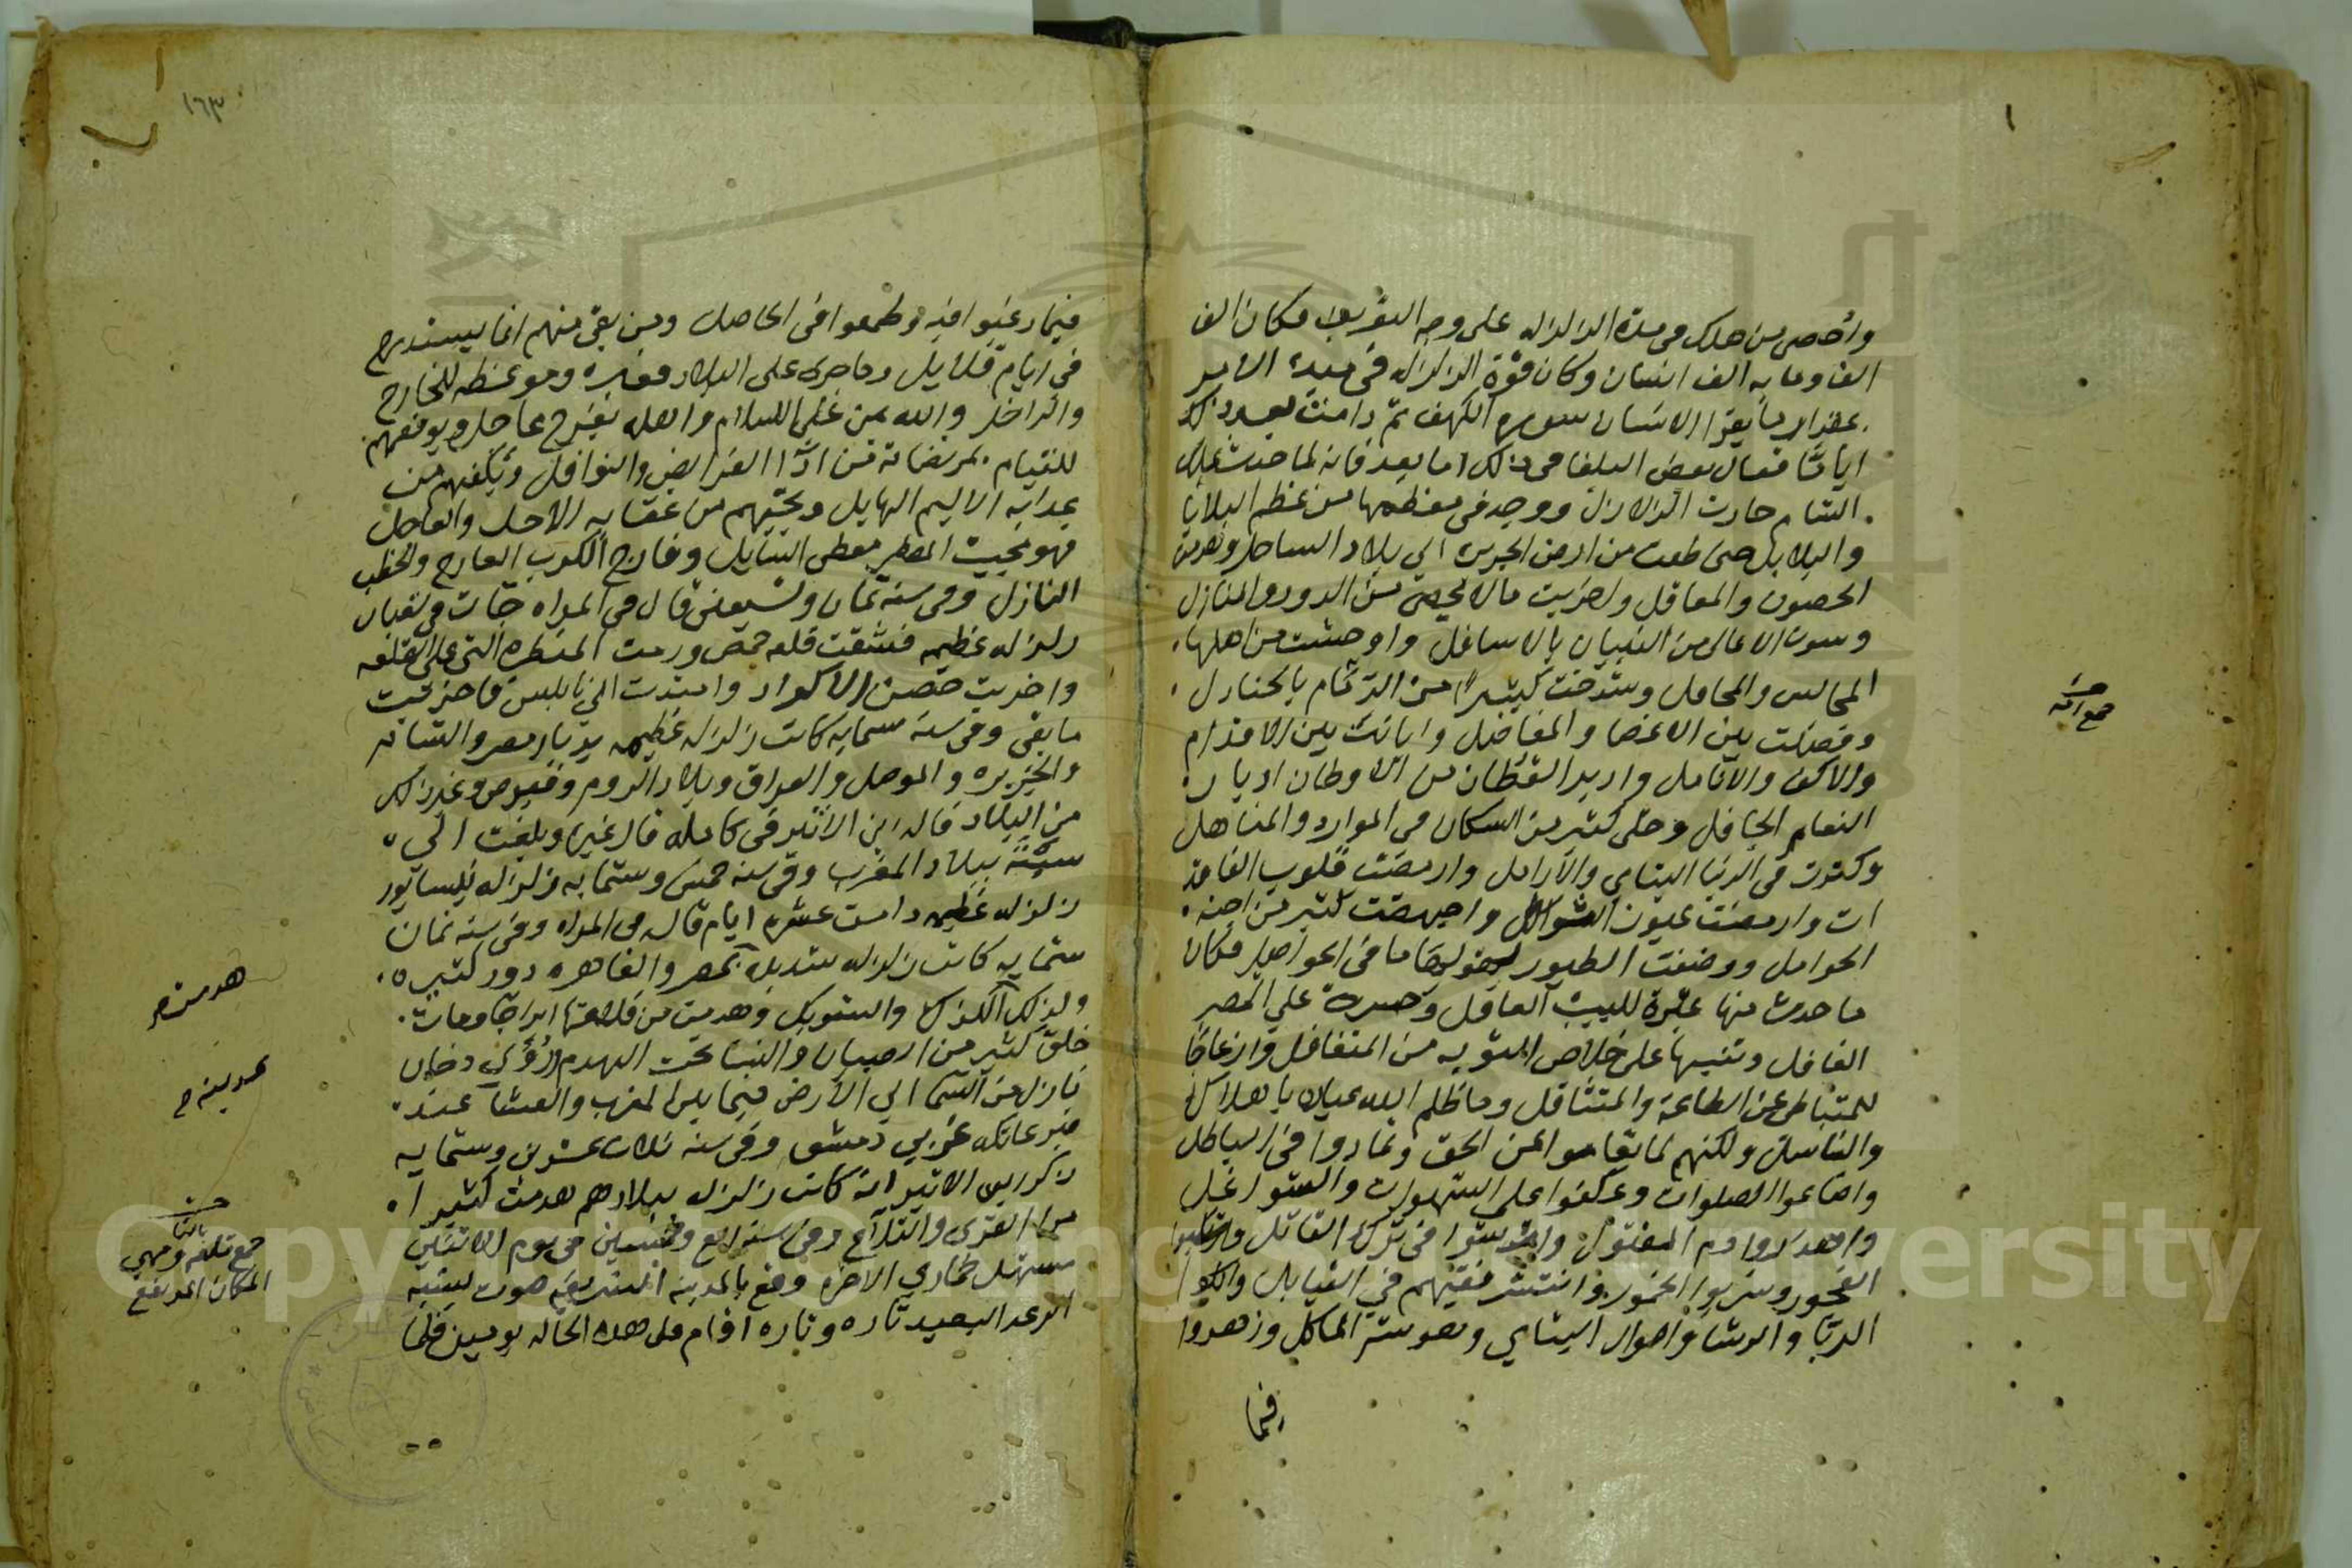 واحصى من هلك فى هذه الزلزله على وجه التقريب فكان الف
الف وماية الف انسان وكان قوة الزلزله في مبدء الامر
بمقدار ما يقرا الانسان سورة الكهف ثم دامت بعد ذلك
اياما فقال بعض البلغا فى ذلك اما بعد فانه لما حدث بملك
الشام حادث الزلازل ووجد فى معظمها من عظم البلايا
والبلابل حتى من ارض الجزيره الي بلاد الساحل
الحصون والمعاقل ما لا يحصى من الدور والمنازل
الاعالى من البنيان بالاسافل واوحشت من اهلها
المجالس والمحافل وشدخت كثيرا من بالجنادل
وفصلت بين الاعضا والمفاصل وابانت بين الاقدام
والاكف والانامل القطان من الاوطان
النعام الجافل وخلى كثير من السكان فى الموارد والمناهل
وكثرت فى الدنيا اليتامي والارامل قلوب الفاقد
ات عيون الثواكل واجهضت كثير من اجنه
الحوامل ووضعت الطيور ما في الحواصل فكان
ما حدث منها عبرة للبيب العاقل وحسرة علي المصر
الغافل وتنبيها على خلاص التوبه من المتغافل وازعاجا
للمتباطى عن الطاعة والمتثاقل وما ظلم الله عباده باهلاك
والناسل ولكنهم لما تعاموا عن الحق وتمادوا فى الباطل
واضاعوا الصلوات وعكفوا على الشهوات والشواغل
واهدروا دم المقتول فى ترك القاتل وارتكبوا
الفجور وشربوا الخمور وانتشر فسقهم في القبايل واكلوا
الربا والرشا واموال اليتامي وهو شر الماكل وزهدوا
فيما
جمع امة
١٦٣
فيما رغبوا فيه وطمعوا فى الحاصل ومن بقي منهم انما يستدرج
في ايام قلايل وما جرى على البلاد فعبره وموعظه للخارج
والداخل والله يمن على الاسلام واهله بفرج عاجل ويوفقهم
للقيام بمرضاته من ادا الفرايض والنوافل ويكفهم من
عذابه الاليم الهايل وينجيهم من عقابه الاجل والعاجل
فهو مجيب المضطر معطى السايل وفارج الكرب الفارج والخطب
النازل وفى سنة ثمان وتسعين قال فى المراه جات فى شعبان
زلزله عظيمه فشققت قلعه حمص ورمت المنظره التي على القلعه
واخربت حصن الاكراد وامتدت الى نابلس فاخربت
ما بقى وفى سنة ستمايه كانت زلزله عظيمه بديار مصر والشام
والجزيره والموصل والعراق وبلاد الروم وقبرص وغير ذلك
من البلاد قاله ابن الاثير فى كامله قال غيره وبلغت الي
سبتة ببلاد المغرب وفى سنه خمس وستمايه زلزله نيسابور
زلزله عظيمه دامت عشره ايام قاله فى المراه وفى سنه ثمان
ستمايه كانت زلزله شديده بمصر والقاهره دور كثيره
وكذلك الكرك والشوبك وهدمت من قلعتها ابراجا ومات
خلق كثير من الصبيان والنسا تحت الهدم ورؤي دخان
نازل من السما الي الارض فيما بين المغرب والعشا عند
قبر عاتكه غربي دمشق وفى سنه ثلاث عشرين وستمايه
ذكر ابن الاثير انه كانت زلزله ببلادهم هدمت كثيرا
من القرى والقلاع وفى سنه اربع وخمسين فى يوم الاثنين
مستهل جمادي الاخره وقع بالمدينه الشريفه صوت يشبه
الرعد البعيد تاره وتاره اقام على هذه الحاله يومين فلما
هدمت صح
جمع تلعه وهي
المكان المرتفع
Copyright © King University